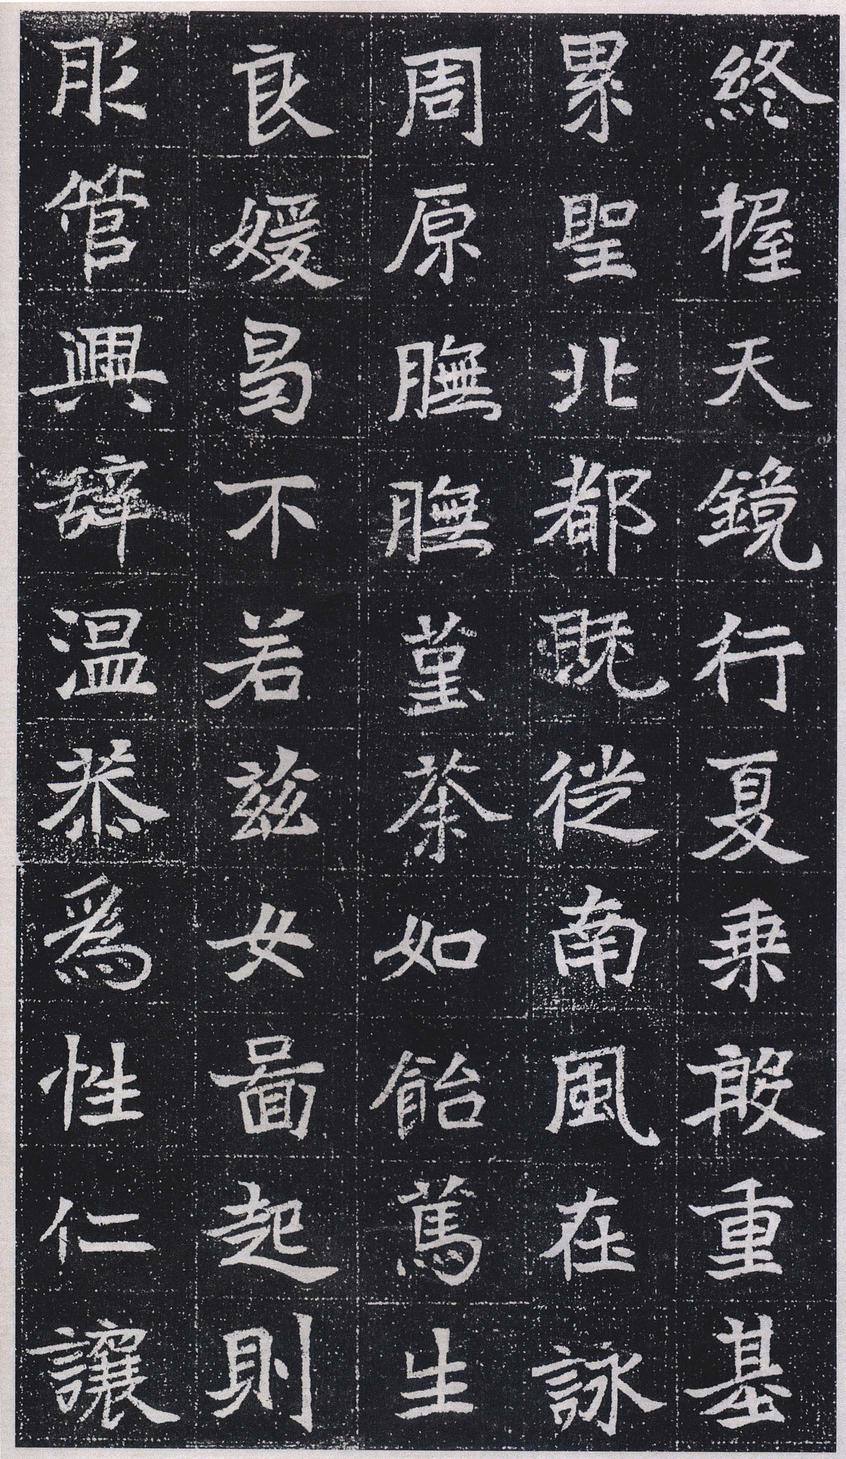 終握天鏡行夏乗殷重基
累聖北都既從南風在詠
周原膴膴堇荼如飴篤生
良媛曷不若兹女啚起則
彤管興辭温恭爲性仁讓